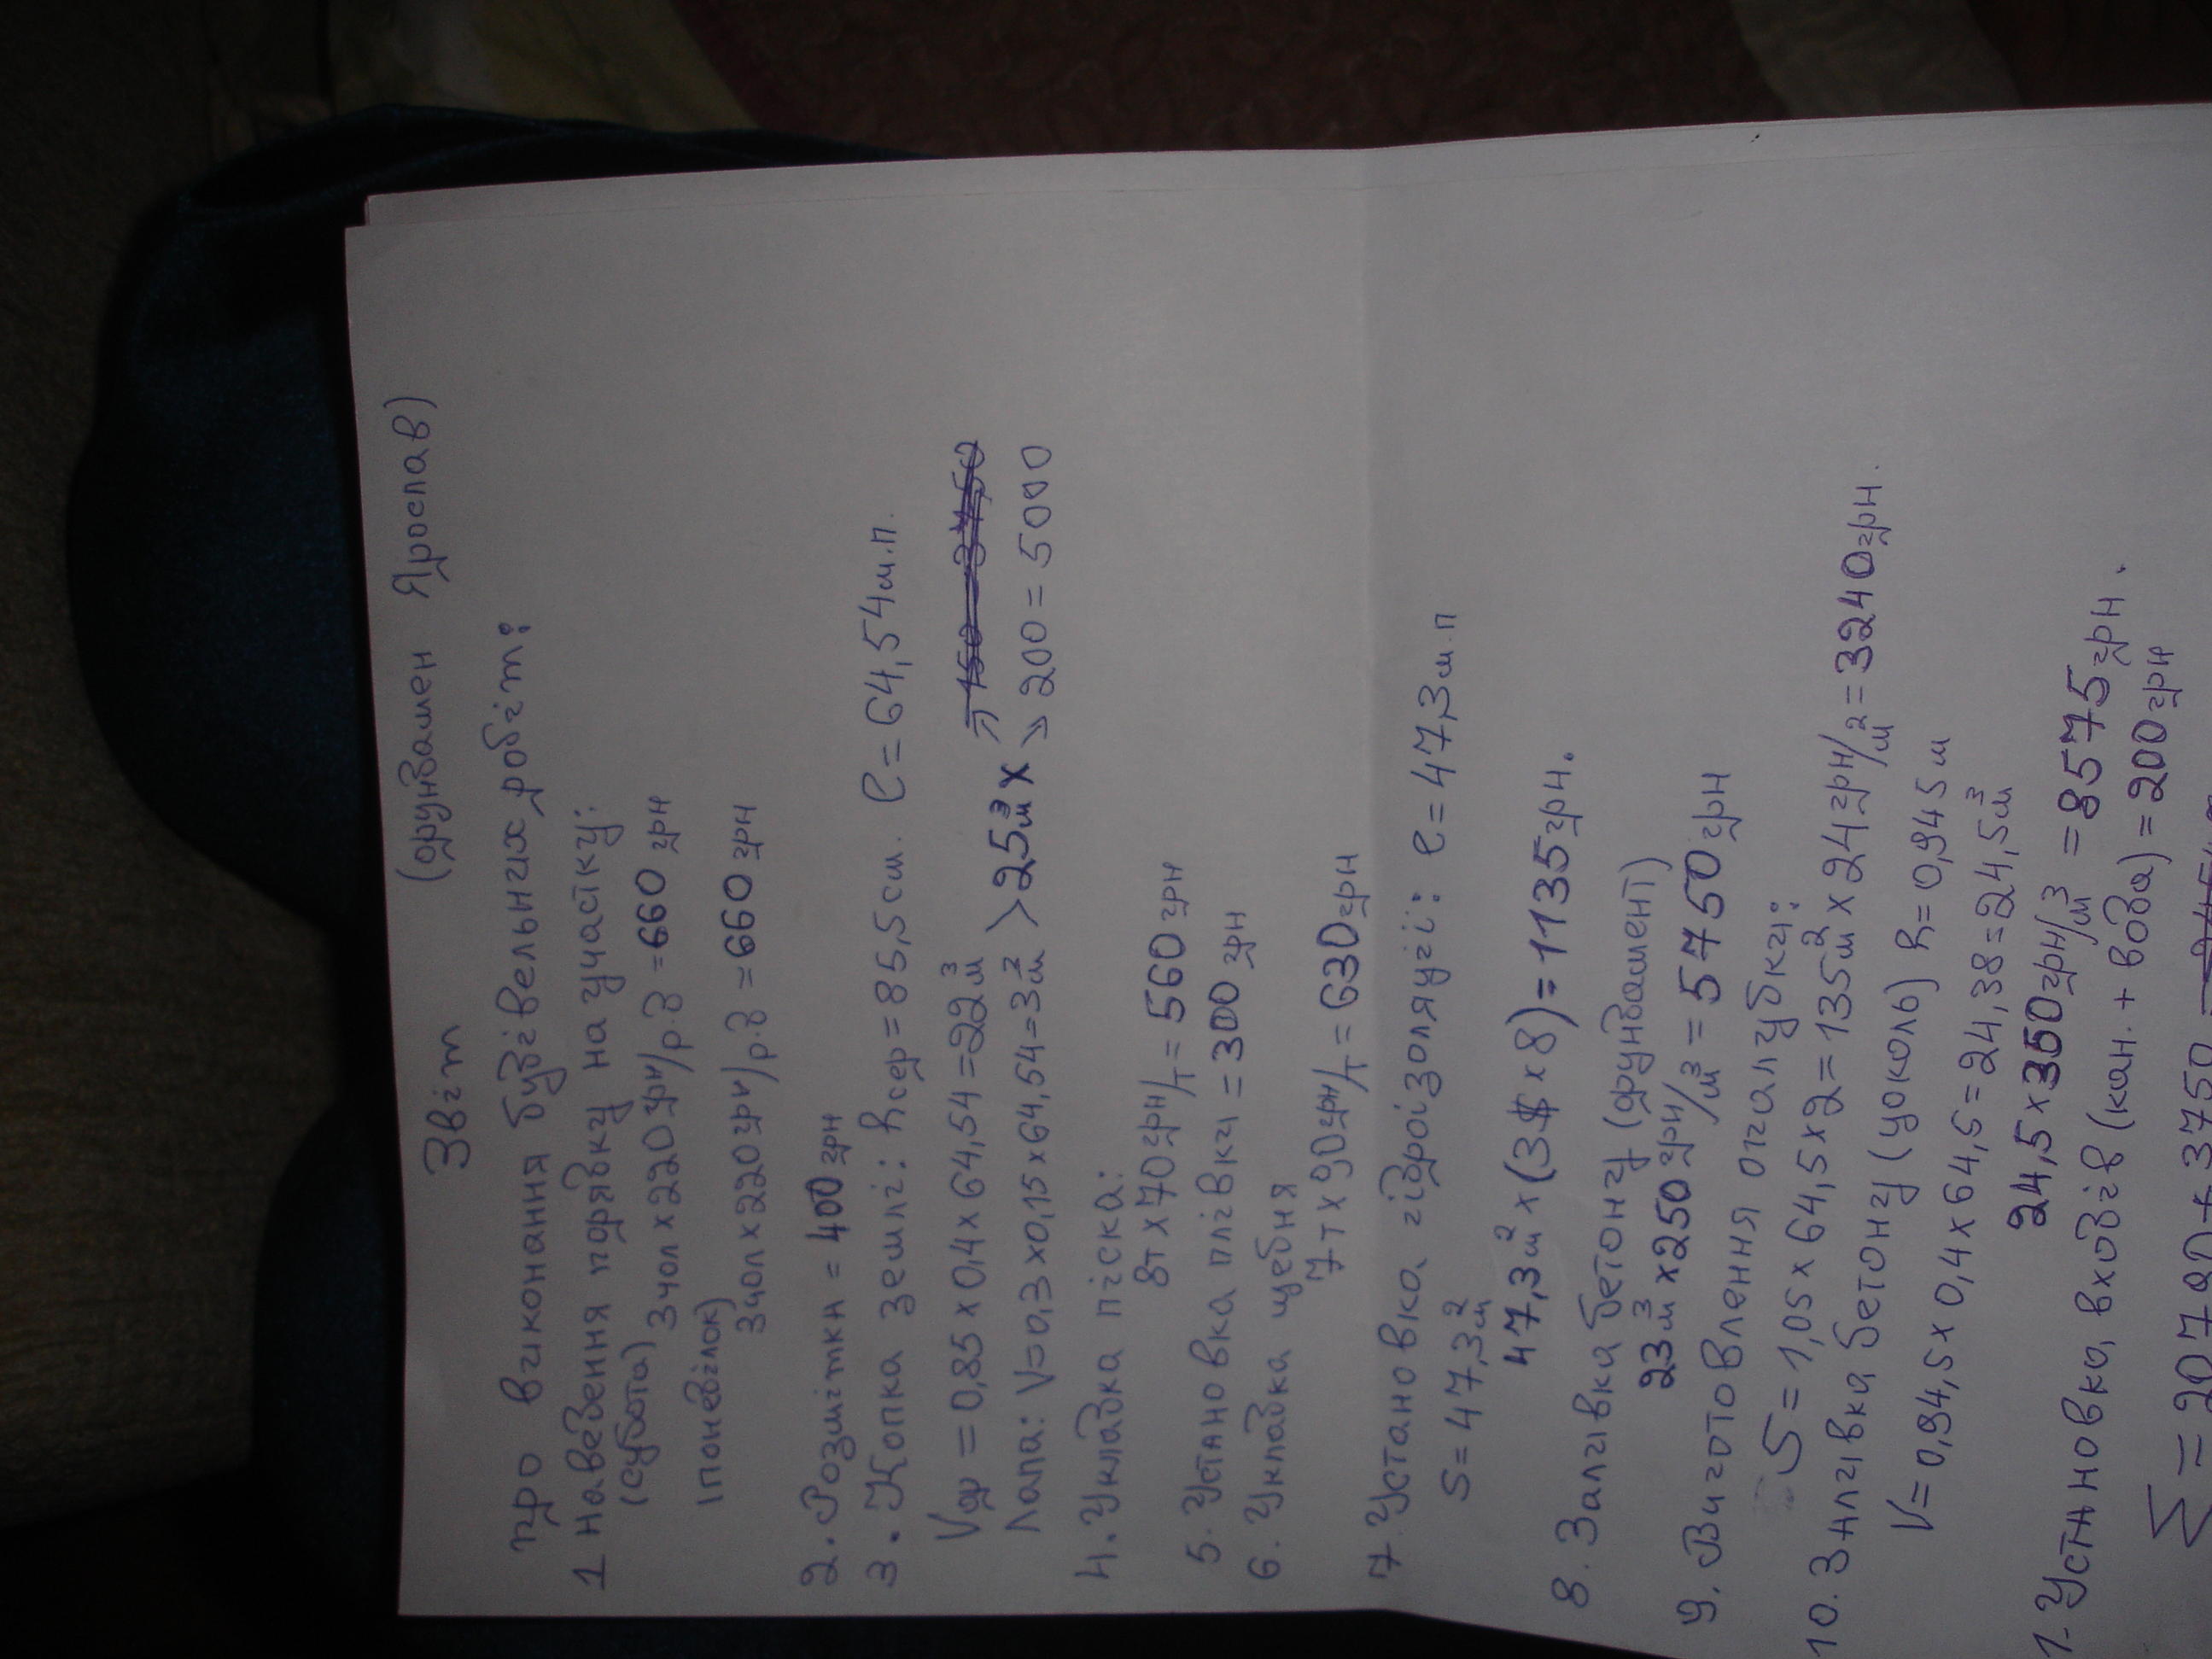 Звіт (фундамен Ярослав)
про виконання будівельних робіт:
1 наведення порядку на участку:
(субота) 3 чол x 220 грн/р.д = 660 грн
(понеділок)
3 чол x 220 грн/р.д = 660 грн
2. Розмітки = 400 грн
3. Копка землі: hсер = 85,5 см. l = 64,54 м.п.
Vф = 0,85 x 0,4 x 64,54 = 22 м³
Лапа: V = 0,3 x 0,15 x 64,54 = 3 м² > 25 м³ x > 200 = 5000
4. Укладка піска:
8т x 70 грн/т = 560 грн
5. Установка плівки = 300 грн
6. Укладка щебня
7т x 90 грн/т = 630 грн
7. Установка гідроізоляції: l = 47,3 м.п
S = 47,3 м²
47,3 м² x (3$ x 8) = 1135 грн.
8. Заливка бетону (фундамент)
23 м³ x 250 грн/м³ = 5750 грн
9. Виготовлення опалубки:
S = 1,05 x 64,5 x 2 = 135 м² x 24 грн/м² = 3240 грн.
10. Заливка бетону (цоколь) h = 0,945 м
V = 0,94,5 x 0,4 x 64,5 = 24,38 = 24,5 м³
24,5 x 350 грн/м³ = 8575 грн.
1. Установка входів (кан. + вода) = 200 грн
Σ = 20720 + 3750